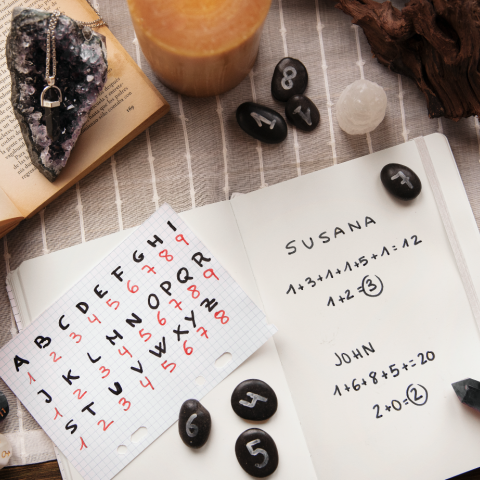 8
7
A B C D E F G H I
1 2 3 4 5 6 7 8 9
J K L M N O P Q R
1 2 3 4 5 6 7 8 9
S T U V W X Y Z
1 2 3 4 5 6 7 8
SUSANA
1+3+1+1+5+1=12
1+2=3
JOHN
1+6+8+5+=20
2+0=2
4
6
5